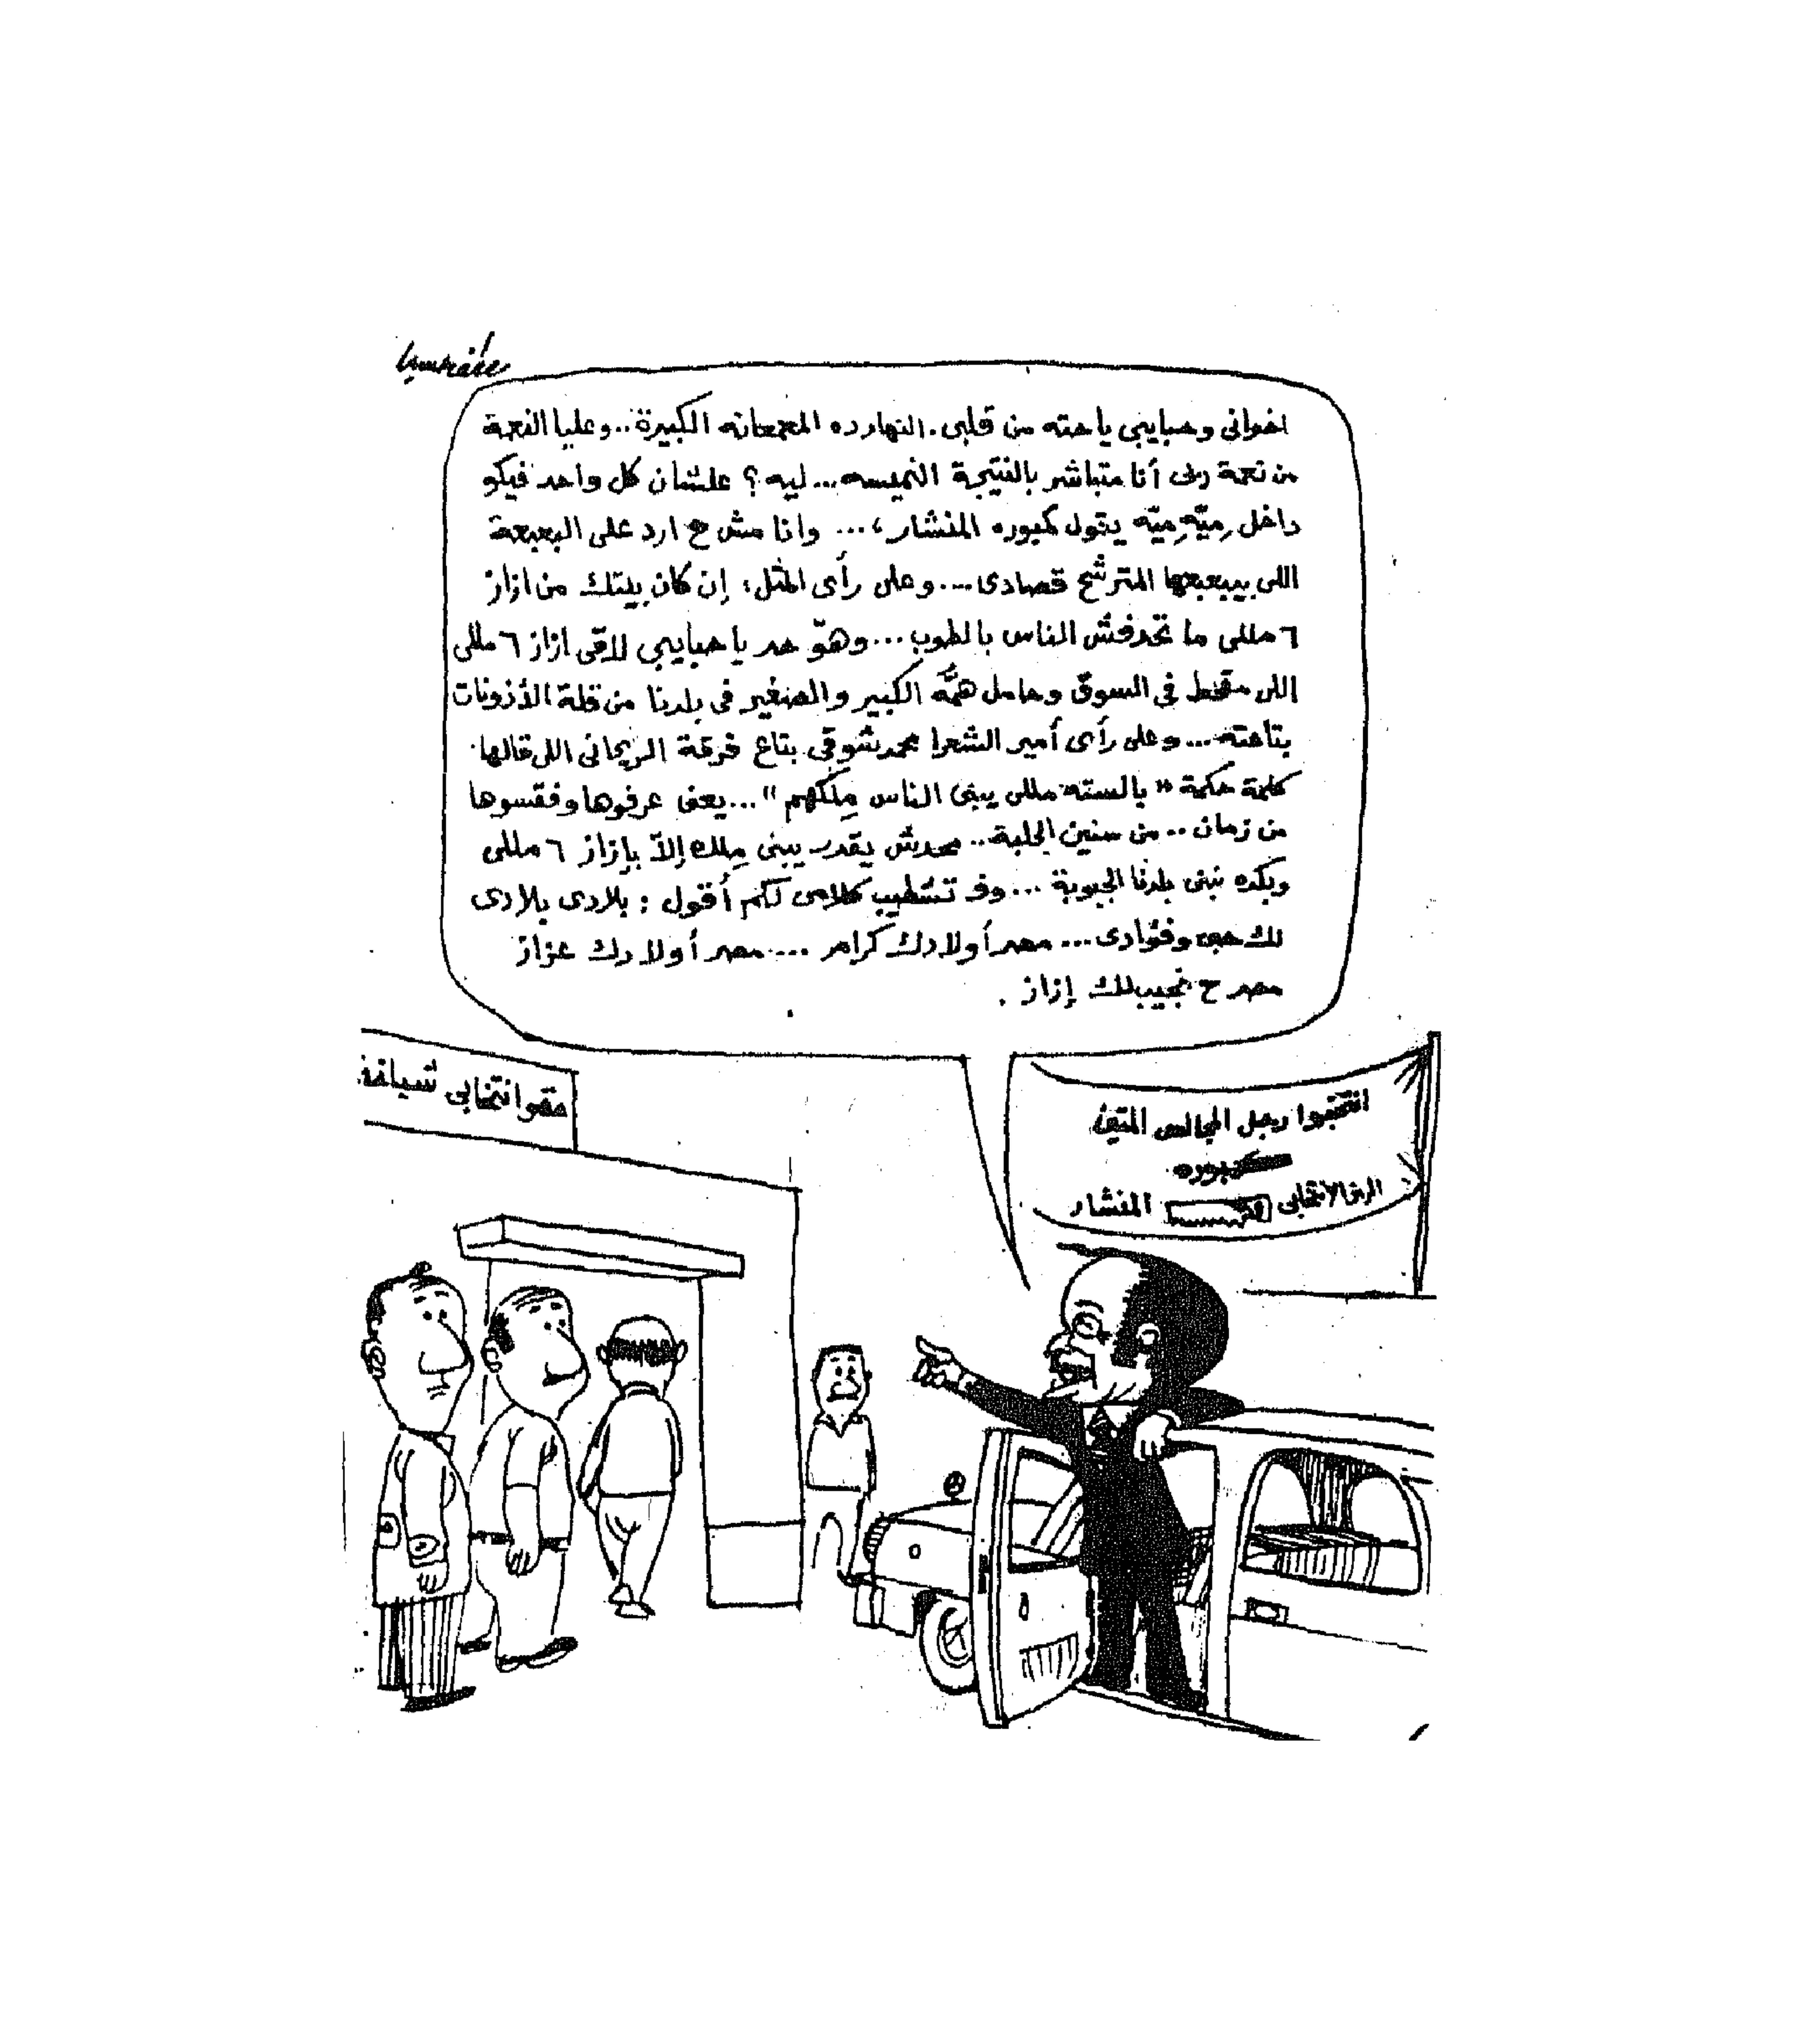 اخوانى وحبايبى ياحته من قلبى. النهارده المعمعانه الكبيرة.. وعليا النعمة
من نعمة ربى أنا متباشر بالنتيجة النميسه... ليه؟ علشان كل واحد فيكو
داخل مِيّه مِيّه يقول كمبوره المنشار،... وانا مش ح ارد على البعبعة
اللى بيبعبعها المترشح قصادى.... وعلى رأى المثل: إن كان بيتك من ازاز
٦ مللى ما تحدفش الناس بالطوب... وهوّ حد يا حبايبى لاقى ازاز ٦ مللى
اللى متقطط فى السوق وحامل همُّه الكبير والصغير فى بلدنا من قلة الأذونات
بتاعته... وعلى رأى أمير الشعرا محمد شوقى بتاع فرقة الريحانى اللى قالها
كلمة حكمة "بالسته مللى يبنى الناس مِلكهم"... يعنى عرفوها وفقسوها
من زمان.. من سنين الجلبة.. محدش يقدر يبنى مِلك إلاّ بإزاز ٦ مللى
وبكده نبنى بلدنا المحبوبة ... وفـ تشطيب كلامى لكم أقول: بلادى بلادى
لك حبى وفؤادى... مصر أولادك كرام .... مصر أولادك عزاز
مصر ح نجيبلك إزاز.
مقر انتخابى شياخة
انتخبوا رجل المجالس المتين
كمبوره
الرمز الانتخابى المنشار